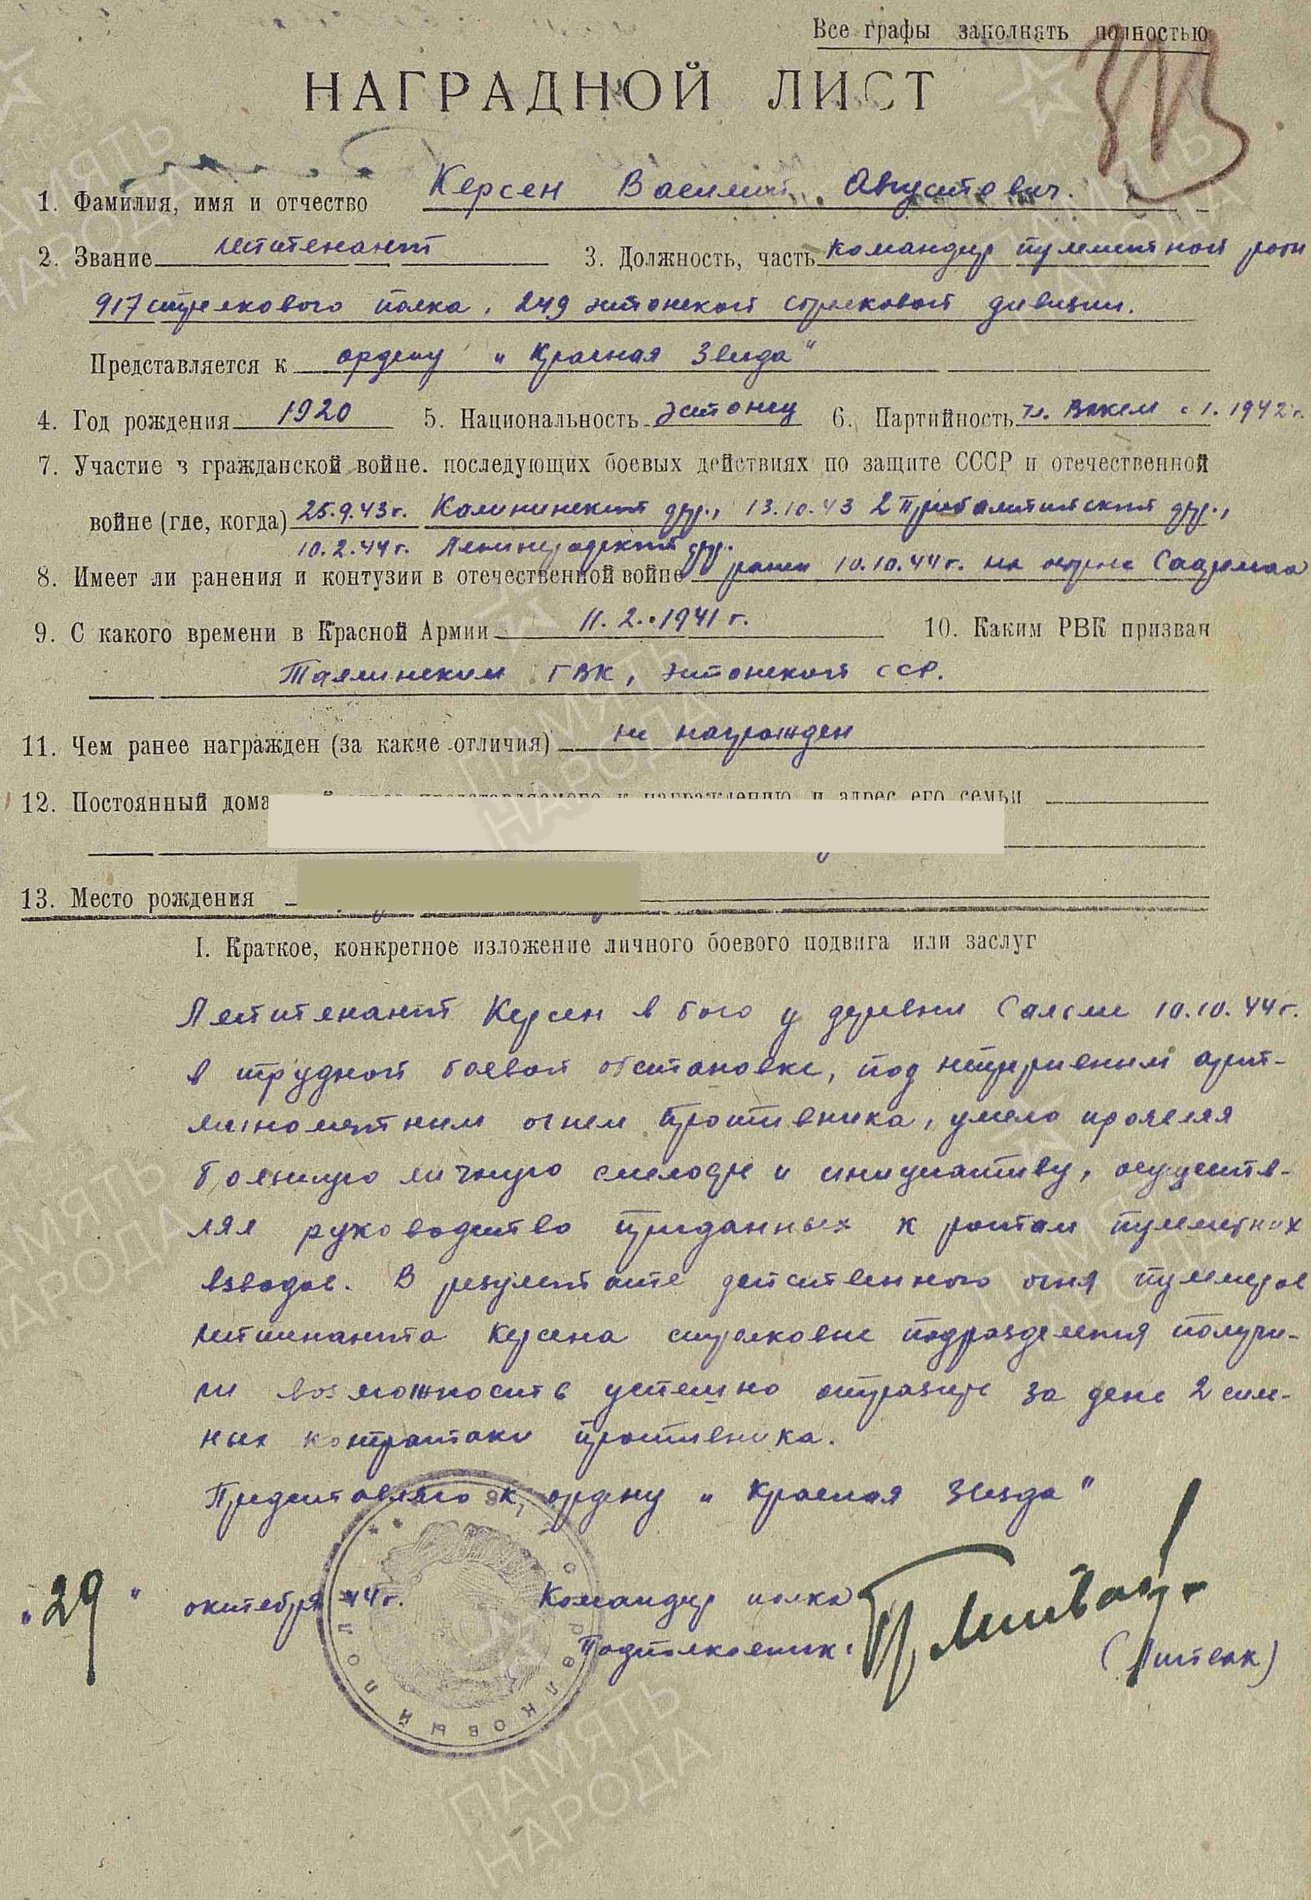 Все графы заполнять полностью
НАГРАДНОЙ ЛИСТ
1. Фамилия, имя и отчество Керсен Василий Августович.
2. Звание лейтенант 3. Должность, часть командир пулеметной роты
917 стрелкового полка, 249 эстонской стрелковой дивизии.
Представляется к ордену „Красная Звезда"
4. Год рождения 1920 5. Национальность эстонец 6. Партийность чл. ВЛКСМ с 1. 1942 г.
7. Участие в гражданской войне. последующих боевых действиях по защите СССР и отечественной
войне (где, когда) 25.9.43г. Калининский фр., 13.10.43 2 Прибалтийский фр.,
10.2.44г. Ленинградский фр.
8. Имеет ли ранения и контузии в отечественной войне ранен 10.10.44г. на острове Сааремаа
9. С какого времени в Красной Армии 11.2.1941 г. 10. Каким РВК призван
Таллинским ГВК, Эстонской ССР.
11. Чем ранее награжден (за какие отличия) не награжден
12. Постоянный представляемого к награждению и адрес его семьи
13. Место рождения
I. Краткое, конкретное изложение личного боевого подвига или заслуг
Лейтенант Керсен в бою у деревни 10.10.44г.
в трудной боевой обстановке, под непрерывным арт-
минометным огнем противника, умело проявляя
большую личную смелость и инициативу, осуществ-
лял руководство приданных к ротам пулеметных
взводов. В результате действенного огня пулеметов
лейтенанта Керсена стрелковые подразделения получи-
ли возможность успешно отразить за день 2 силь-
ных контратаки противника.
Представляю к ордену „Красная Звезда"
„29" октября 44г. Командир полка
Подполковник: (Литвак)
СТРЕЛКОВЫЙ ПОЛК
ПАМЯТЬ НАРОДА